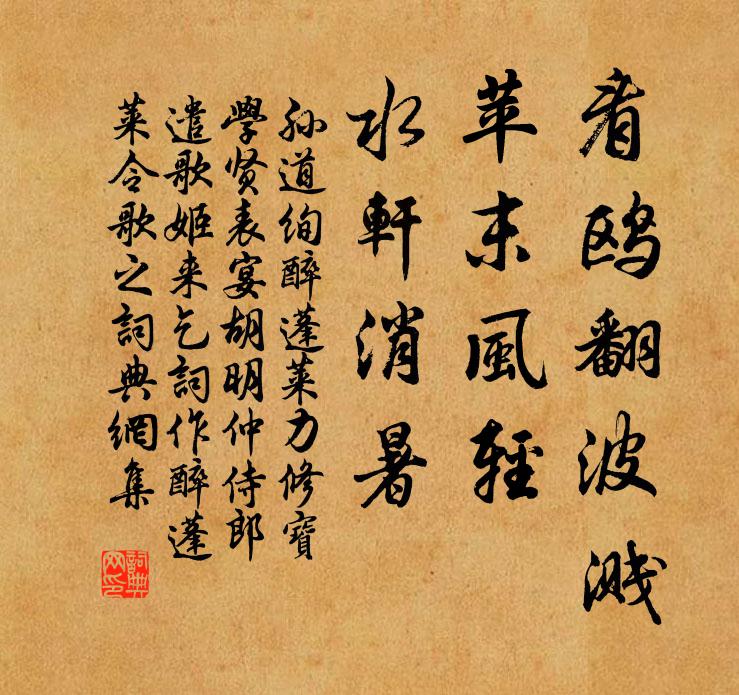 看鸥翻波溅
苹末風輕
水軒消暑
孙道绚醉蓬莱力修寶
學贤表宴胡明仲侍郎
遣歌姬来乞詞作醉蓬
莱令歌之詞典網集
詞典网印